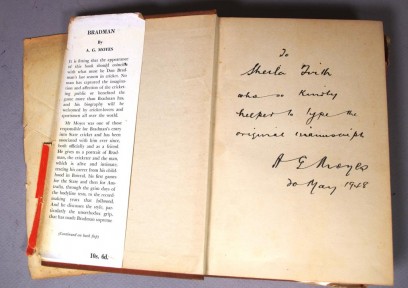 BRADMAN
By
A. G. MOYES
It is fitting that the appearance
of this book should coincide
with what must be Don Brad-
man's last season in cricket. No
man has captured the imagina-
tion and affection of his cricket-
ing public or benefited the
game more than Bradman has,
and his biography will be
welcomed by cricket-lovers and
sportsmen all over the world.
Mr Moyes was one of those
responsible for Bradman's entry
into State cricket and has been
associated with him ever since,
both officially and as a friend.
He gives us a portrait of Brad-
man, the cricketer and the man,
which is alive and intimate,
tracing his career from his child-
hood in Bowral, his first game
for the State and then for Aus-
tralia, through the grim days of
the bodyline tests to the record-
making years that followed.
And he discusses the style, par-
ticularly the unorthodox grip,
that has made Bradman supreme
(Continued on back flap)
10s. 6d.
To
Sheila Firth
who so kindly
helped to type the
original manuscript
A G Moyes
20 May 1948